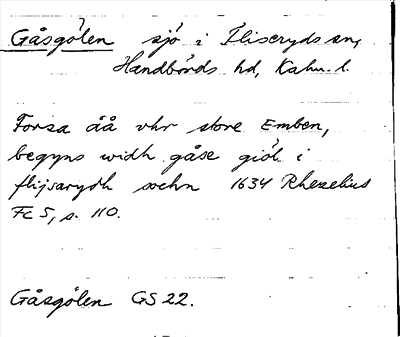 Gåsgölen sjö i Fliseryds sn,
Handbörds hd, Kalm. l.
Forsa åå vhr store Emben,
begyns widh gåse giöl i
flijsarydh sochn 1634 Rhezelius
Fc 5, s. 110.
Gåsgölen GS 22.